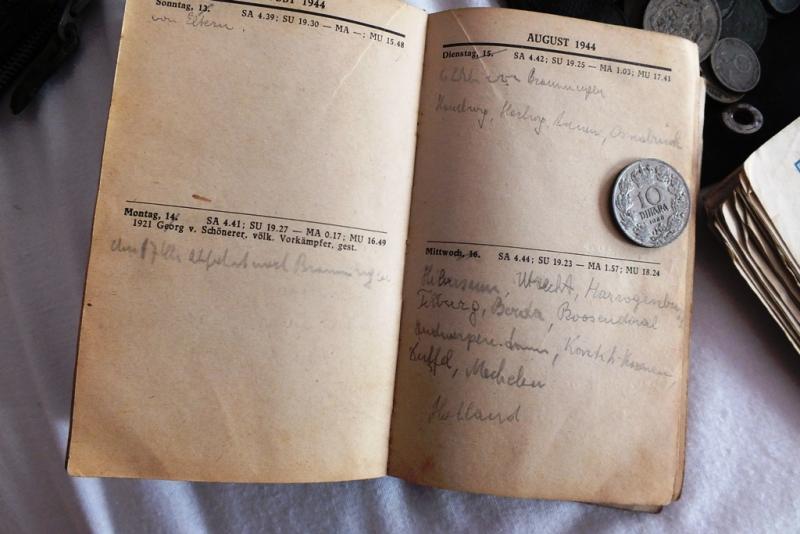 UST 1944
Sonntag, 13. SA 4.39; SU 19.30 — MA —; MU 15.48
von Eltern.
Montag, 14. SA 4.41; SU 19.27 — MA 0.17; MU 16.49
1921 Georg v. Schönerer, völk. Vorkämpfer, gest.
17 Uhr Abfahrt nach
AUGUST 1944
Dienstag, 15. SA 4.42; SU 19.25 — MA 1.03; MU 17.41
von
Hamburg, Harburg, Osnabrück
10
ДИНАРА
Mittwoch, 16. SA 4.44; SU 19.23 — MA 1.57; MU 18.24
Hilversum, Utrecht, Harzogenbusch
Tilburg, Breda, Roosendaal
Antwerpen
Duffel, Mechelen
Holland